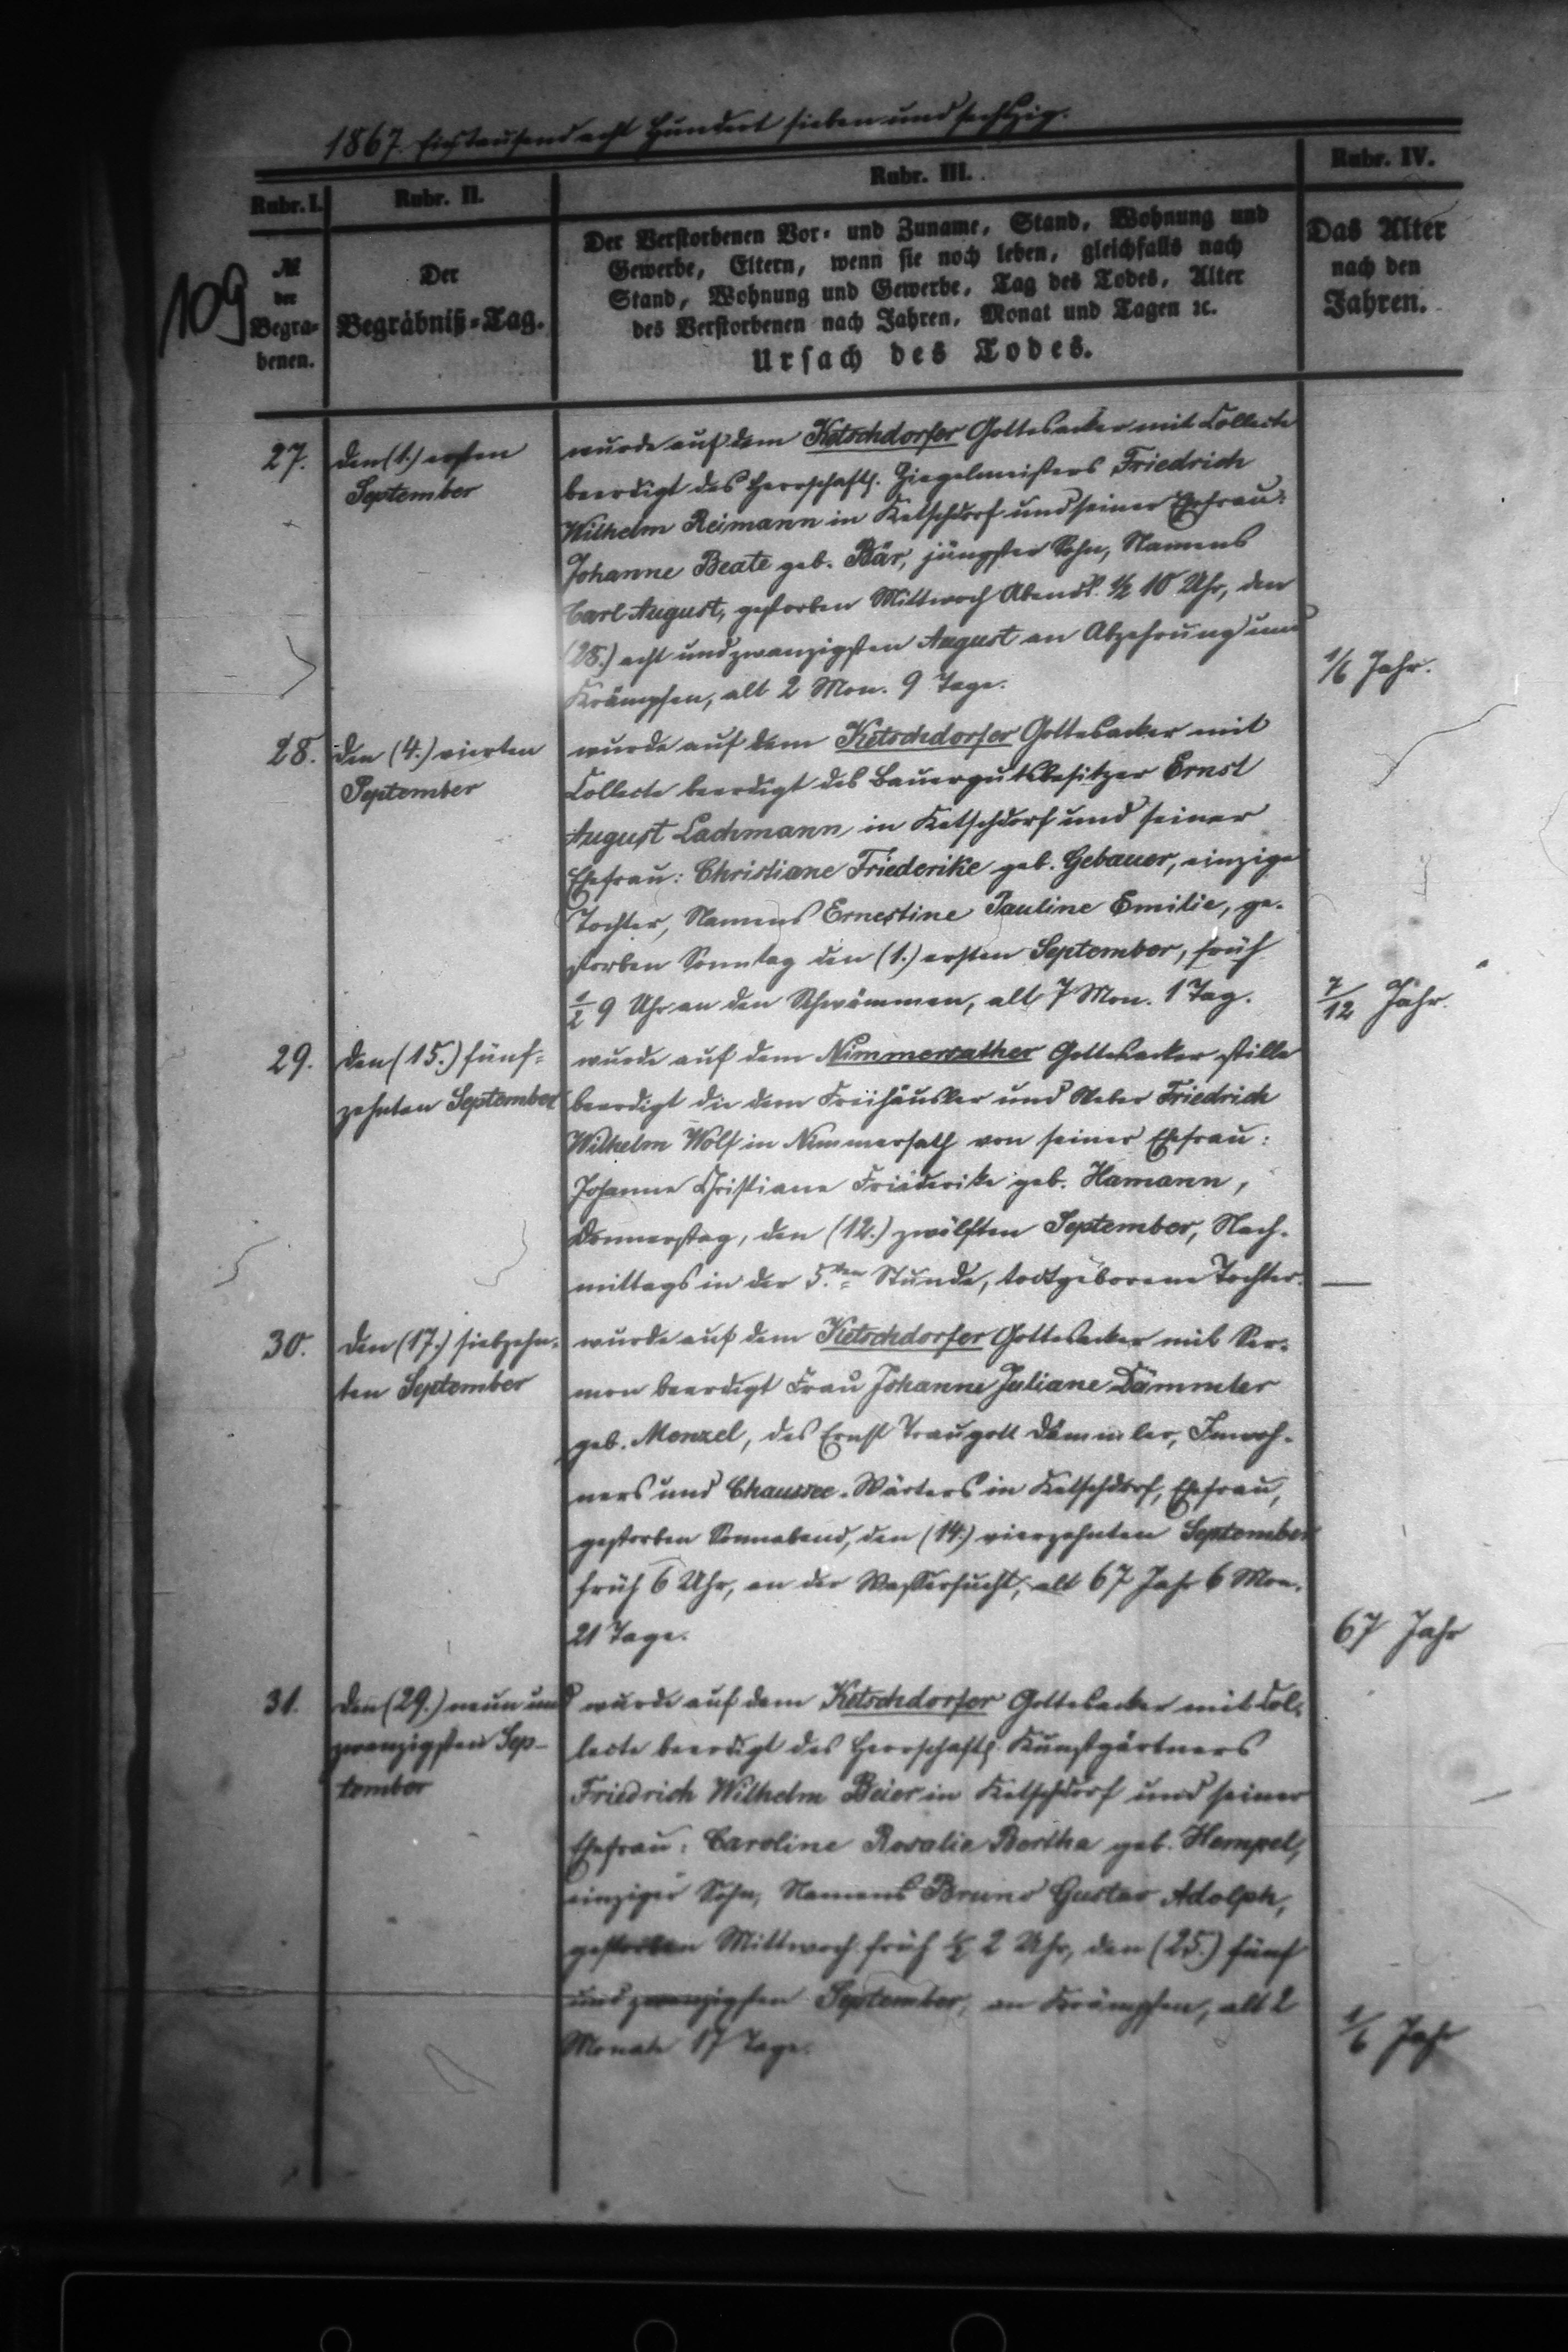 1867. Eintausend acht Hundert sieben und sechzig.
Rubr. I.
Rubr. II.
Rubr. III.
Rubr. IV.
109
№
der
Begra-
benen.
Der
Begräbniß-Tag.
Der Verstorbenen Vor- und Zuname, Stand, Wohnung und
Gewerbe, Eltern, wenn sie noch leben, gleichfalls nach
Stand, Wohnung und Gewerbe, Tag des Todes, Alter
des Verstorbenen nach Jahren, Monat und Tagen ꝛc.
Ursach des Todes.
Das Alter
nach den
Jahren.
27.
den (1.) ersten
September
wurde auf dem Ketschdorfer Gottesacker mit Collecte
beerdigt des herrschaftl. Ziegelmeisters Friedrich
Wilhelm Reimann in Ketschdorf und seiner Ehefrau:
Johanne Beate geb. Bär, jüngster Sohn, Namens
Carl August, gestorben Mittwoch Abends ½ 10 Uhr, den
(28.) acht und zwanzigsten August an Abzehrung und
Krämpfen, alt 2 Mon. 9 Tage.
1/6 Jahr.
28.
den (4.) vierten
September
wurde auf dem Ketschdorfer Gottesacker mit
Collecte beerdigt des Bauergutsbesitzer Ernst
August Lachmann in Ketschdorf und seiner
Ehefrau: Christiane Friederike geb. Gebauer, einzige
Tochter, Namens Ernestine Pauline Emilie, ge-
storben Sonntag den (1.) ersten September, früh
½ 9 Uhr an den Schwämmen, alt 7 Mon. 1 Tag.
7/12 Jahr.
29.
den (15.) fünf-
zehnten September
wurde auf dem Nimmersather Gottesacker stille
beerdigt die dem Freihäusler und Weber Friedrich
Wilhelm Wolf in Nimmersath von seiner Ehefrau:
Johanne Christiane Friederike geb. Hamann,
Donnerstag, den (12.) zwölften September, Nach-
mittags in der 5.ten Stunde, todtgeborene Tochter.
—
30.
den (17.) siebzehn-
ten September
wurde auf dem Ketschdorfer Gottesacker mit Ser-
mon beerdigt Frau Johanne Juliane Dämmler
geb. Menzel, des Ernst Traugott Dämmler, Inwoh-
ners und Chaussee-Wärters in Ketschdorf, Ehefrau,
gestorben Sonnabend, den (14.) vierzehnten September
früh 6 Uhr, an der Wassersucht, alt 67 Jahr 6 Mon.
21 Tage.
67 Jahr
31.
den (29.) neun und
zwanzigsten Sep-
tember
wurde auf dem Ketschdorfer Gottesacker mit Col-
lecte beerdigt des herrschaftl. Kunstgärtners
Friedrich Wilhelm Beier in Ketschdorf und seiner
Ehefrau: Caroline Rosalie Bertha geb. Hempel,
einziger Sohn, Namens Bruno Gustav Adolph,
gestorben Mittwoch früh ½ 2 Uhr, den (25.) fünf
und zwanzigsten September, an Krämpfen, alt 2
Monate 17 Tage.
1/6 Jahr